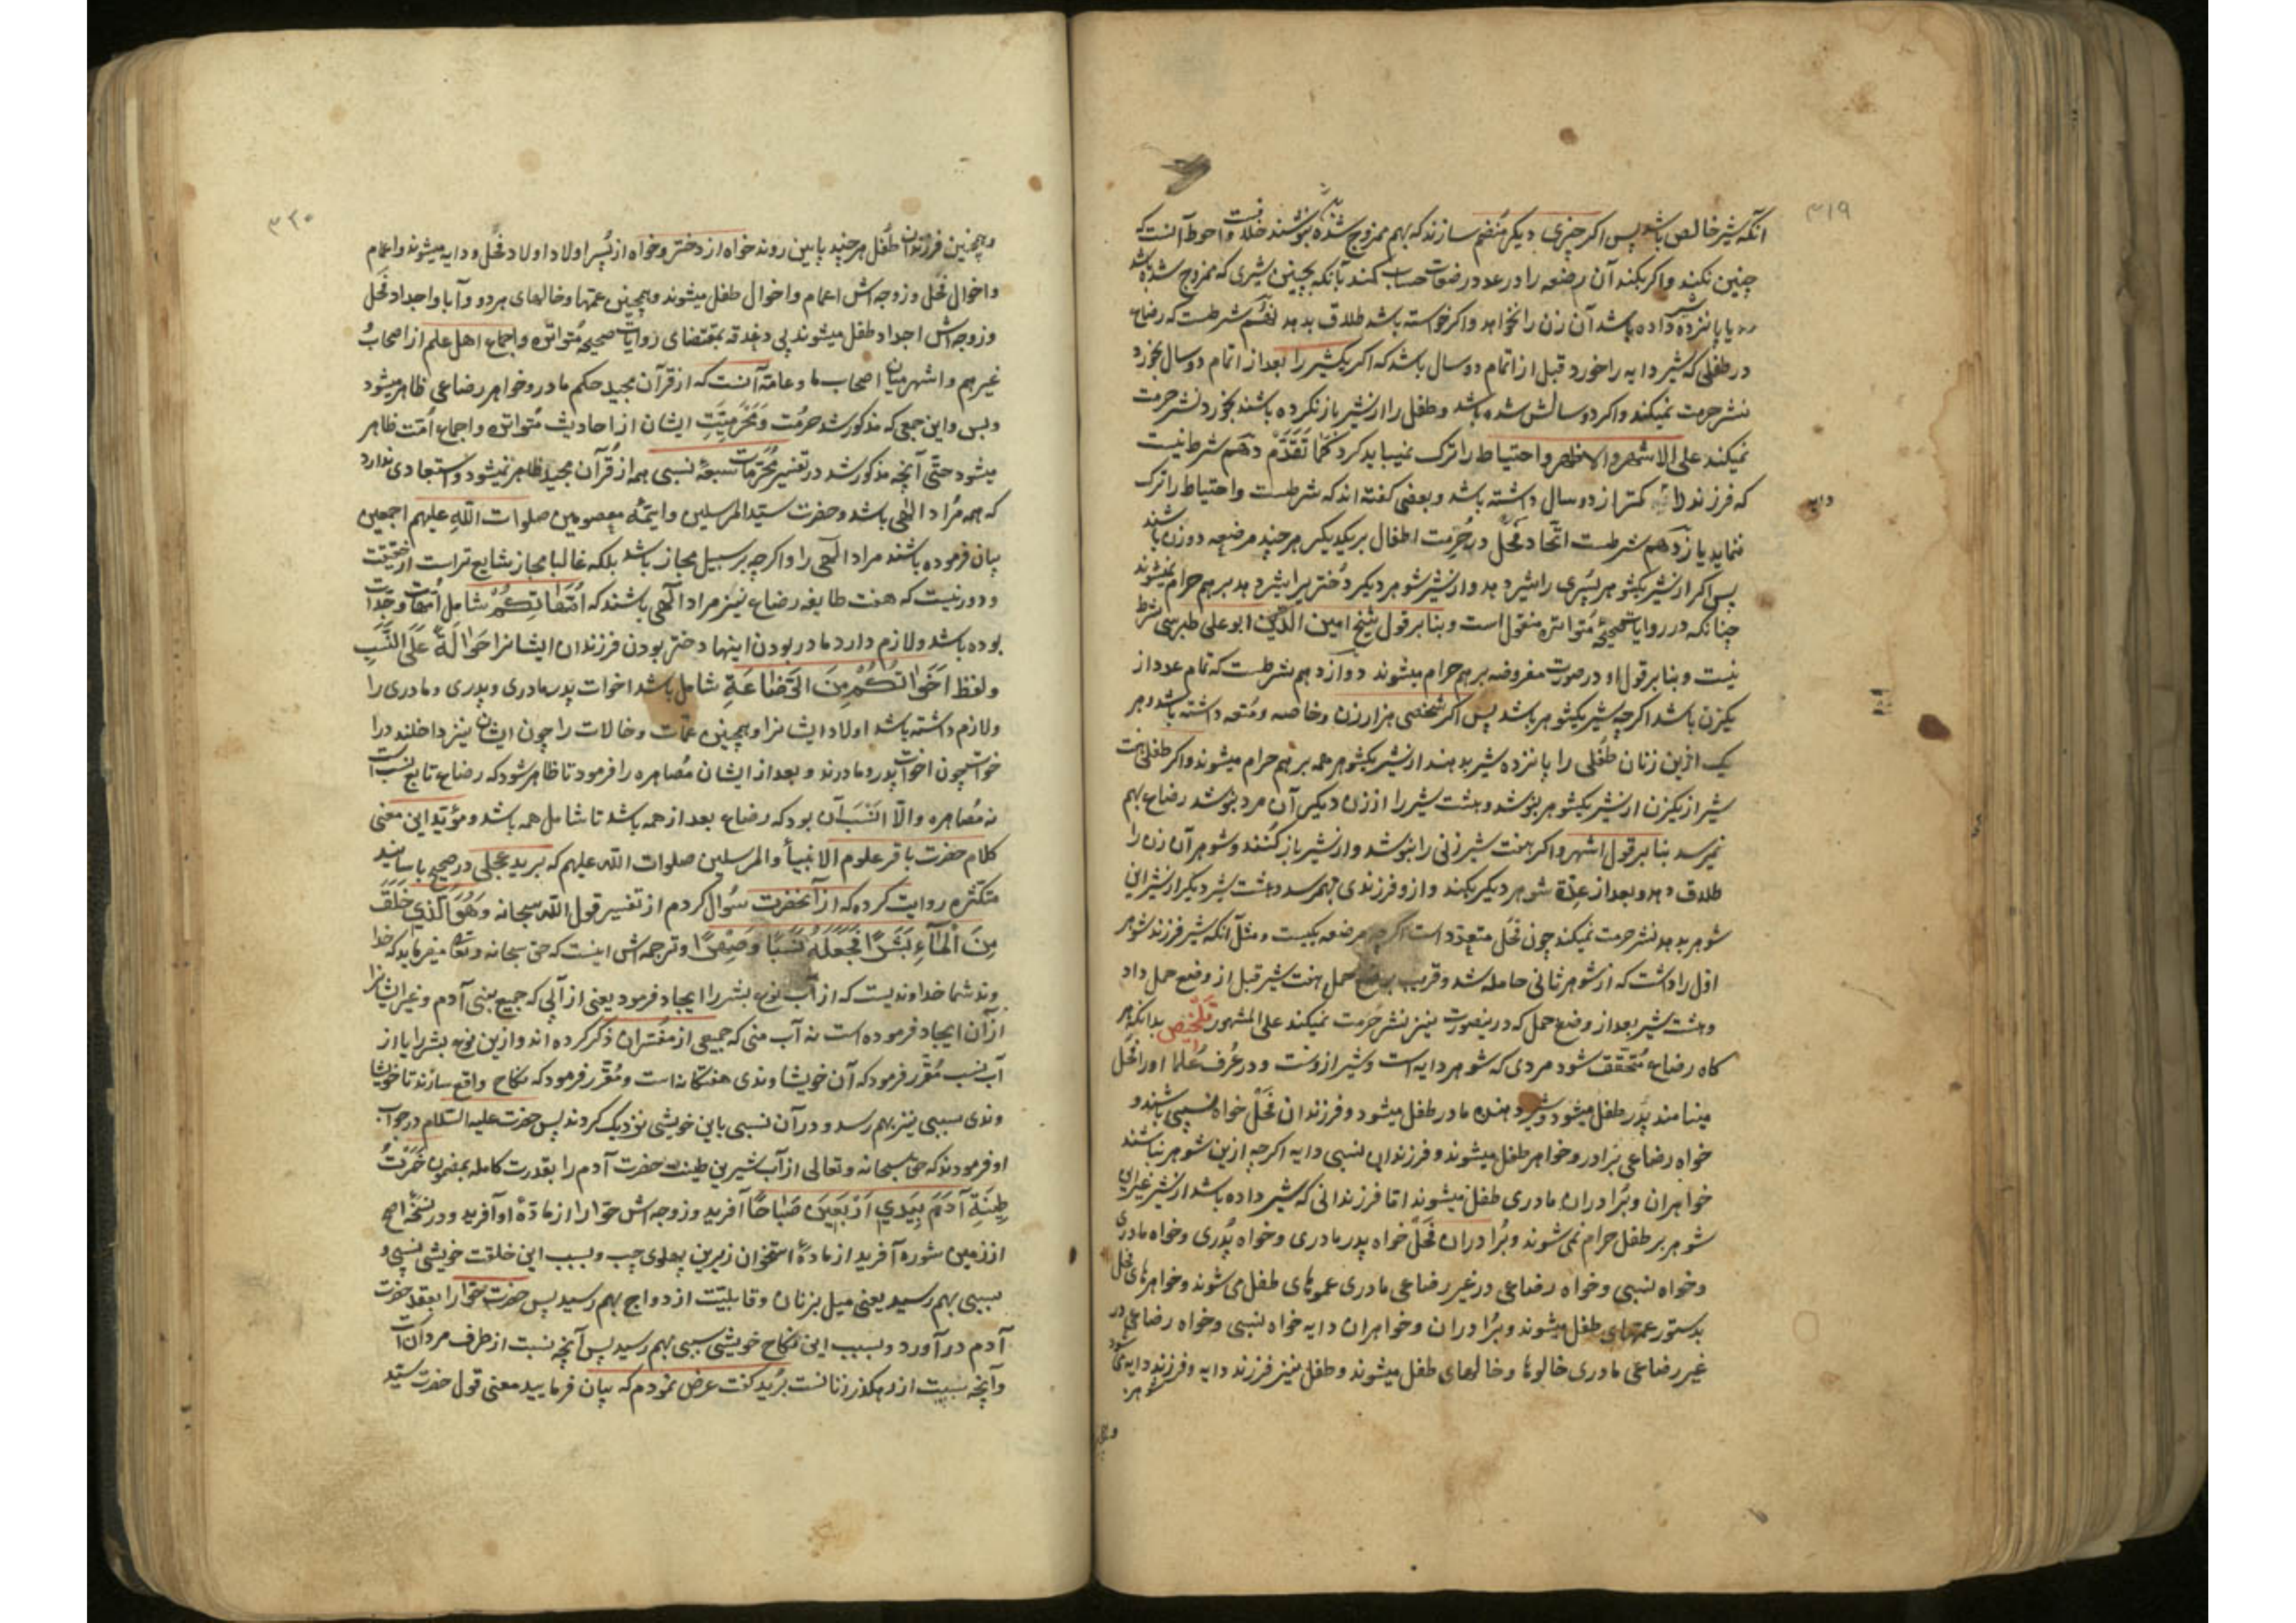 ۳۱۹
آنکه شیر خالص باشد پس اکر چیزی دیکر منضم سازند که بهم ممزوج شده بنوشند خلافست و احوط آنست که
چنین نکند و اکر بکند آن رضعه را در عدد رضعات حساب کند بآنکه بچنین شیری که ممزوج شده باشد
ده یا پانزده شیر داده باشد آن زن را نخواهد و اکر خواسته باشد طلاق بدهد نهم شرطست که رضاع
در طفلی که شیر دایه را خورد قبل از اتمام دو سال باشد که اکر یکشیر را بعد از اتمام دو سال بخورد
نشر حرمت نمیکند و اکر دو سالش شده باشد و طفل را از شیر باز نکرده باشند بخورد نشر حرمت
نمیکند علی الاشهر والاظهر و احتیاط را ترک نمیباید کرد کَمَا تَقَدَّمَ دهم شرط نیست
که فرزند دایه کمتر از دو سال داشته باشد و بعضی کفته اند که شرطست و احتیاط را ترک
دایه
ننماید یازدهم شرطست اتّحاد فحل در حُرمت اطفال بر یکدیکر هر چند مرضعه دو زن باشند
پس اکر از شیر یکشوهر پسری را شیر دهد و از شیر شوهر دیکر دُختری را شیر دهد بر هم حرام نمیشوند
چنانکه در روایات صحیحهٔ مُتواتره منقول است و بنا بر قول شیخ امین الدّین ابو علی طبرسی شرط
نیست و بنا بر قول او در صورت مفروضه بر هم حرام میشوند دوازدهم شرطست که تمام عدد از
یکزن باشد اکر چه شیر یکشوهر باشد پس اکر شخصی هزار زن وخاصه و مُتعه داشته باشد و هر
یک ازین زنان طفلی را پانزده شیر بدهند از شیر یکشوهر همه بر هم حرام میشوند و اکر طفلی هفت
شیر از یکزن از شیر یکشوهر بنوشد و هشت شیر را از زن دیکر آن مرد بنوشد رضاع بهم
نمیرسد بنا بر قول اشهر و اکر هفت شیر زنی را بنوشد و از شیر باز کُنند و شوهر آن زن را
طلاق دهد و بعد از عدّة شوهر دیکر بکند و ازو فرزندی بهمرسد و هشت شیر دیکر از شیر این
شوهر بدهد نشر حرمت نمیکند چون فحل متعدّد است اکر چه مرضعه یکیست و مثل آنکه شیر فرزند شوهر
اوّل را داشت که از شوهر ثانی حامله شد و قریب بوضع حمل هفت شیر قبل از وضع حمل داد
و هشت شیر بعد از وضع حمل که درینصورت نیز نشر حُرمت نمیکند علی المشهور تَلْخیص بدانکه هر
کاه رضاع مُتحقّق شود مردی که شوهر دایه است و شیر ازوست و در عُرف عُلما او را فحل
مینامند پدر طفل میشود و شیر دهنده مادر طفل میشود و فرزندان فحل خواه نسبی باشند و
خواه رضاعی برادر و خواهر طفل میشوند و فرزندان نسبی دایه اکر چه ازین شوهر نباشند
خواهران و برادران مادری طفل میشوند امّا فرزندانی که شیر داده باشد از شیر غیر این
شوهر بر طفل حرام نمی شوند و برادران فحل خواه پدر مادری و خواه پدری و خواه مادری
و خواه نسبی و خواه رضاعی در غیر رضاعی مادری عموهای طفل می شوند و خواهرهای فحل
بدستور عمتهای طفل میشوند و برادران و خواهران دایه خواه نسبی و خواه رضاعی در
غیر رضاعی مادری خالوها و خالهای طفل میشوند و طفل نیز فرزند دایه و فرزند دایه میشود
شوهر
۳۲۰
و همچنین فرزندان طفل هر چند پایین روند خواه از دختر و خواه از پُسر اولاد اولاد فحل و دایه میشوند و اعمام
و اخوال فحل و زوجه اش اعمام و اخوال طفل میشوند و همچنین عمتها و خالهای هر دو و آبا و اجداد فحل
و زوجه اش اجداد طفل میشوند بی دغدقه بمقتضای روایات صحیحه مُتواتره و اجماع اهل علم از اصحاب
غیر هم و اشهر میان اصحاب ما و عامّه آنست که از قرآن مجید حکم مادر و خواهر رضاعی ظاهر میشود
و بس و این جمعی که مذکور شد حرمُت وَمَحْرَمِیَّتِ ایشان از احادیث مُتواتره و اجماع اُمّت ظاهر
میشود حتّی آنچه مذکور شد در تفسیر مُحرّمات سبعهٔ نسبی همه از قُرآن مجید ظاهر نمیشود و استبعادی ندارد
که همه مُراد الٰهی باشد و حضرت سیّد المرسلین و ایمّهٔ معصومین صلوات اللّٰه علیهم اجمعین
بیان فرموده باشند مراد الٓهی را و اکر چه بر سبیل مجاز باشد بلکه غالبا مجاز شایع تر است از حقیقت
و دور نیست که هفت طایفه رضاع نیز مراد الٓهی باشند که اُمَّهَاتُکُمْ شامل اُمّهات و جدّات
بوده باشد و لازم دارد مادر بودن اینها دختر بودن فرزندان ایشانرا حَوَالَةً عَلَی النَّسَبِ
و لفظ اَخَوَاتُکُمْ مِنَ الرَّضَاعَةِ شامل باشد اخوات پدر مادری و پدری و مادری را
و لازم داشته باشد اولاد ایشانرا و همچنین عمّات و خالات را چون ایشان نیز داخلند در ا
خوات چون اخوات پدر و مادرند و بعد از ایشان مُصاهره را فرمود تا ظاهر شود که رضاع تابع نسبست
نه مُصاهره و الّا اَنْسَب آن بود که رضاع بعد از همه باشد تا شامل همه باشد و مؤیّد این معنی
کلام حضرت باقر علوم الانبیأ والمرسلین صلوات اللّه علیهم که برید عجلی در صحیح باسانید
متکثّره روایت کرده که از آنحضرت سُوال کردم از تفسیر قول اللّه سبحانه وَهُوَ الَّذِي خَلَقَ
مِنَ الْمَاءِ بَشَرًا فَجَعَلَهُ نَسَبًا وَصِهْرًا و ترجمه اش اینست که حق سبحانه و تعالی میفرماید که خدا
وند شما خداوندیست که از آب نوع بشر را ایجاد فرمود یعنی از آبی که جمیع بنی آدم و غیر ایشانرا
از آن ایجاد فرموده است نه آب منی که جمیعی از مفسّران ذکر کرده اند و ازین نوع بشر را یا از
آب نسب مُقّرر فرمود که آن خویشاوندی هفتکانه است و مُقّرر فرمود که نکاح واقع سازند تا خویشا
وندی سببی نیز بهم رسد و در آن نسبی باین خویشی نزدیک کردند پس حضرت علیه السّلام در جواب
او فرمودند که حق سبحانه و تعالی از آب شیرین طینت حضرت آدم را بقدرت کامله بمضمون خَمَّرْتُ
طِینَةَ آدَمَ بِیَدِي اَرْبَعِینَ صَبَاحًا آفرید و زوجه اش حوّا را از مادّهٔ او آفرید و در نسخهٔ اصح
از زمین شوره آفرید از مادهٔ استخوان زیرین پهلوی چپ و بسبب این خلقت خویشی نسبی و
سببی بهم رسید یعنی میل بزنان و قابلیّت ازدواج بهم رسید پس حضرت حوّا را بعقد حضرت
آدم در آورد و بسبب این نکاح خویشی سببی بهم رسید پس آنچه نسبت از طرف مردانست
و آنچه سببیت از رهکذر زنانست بُرید کفت عرض نمودم که بیان فرمایید معنی قول حضرت سیّد